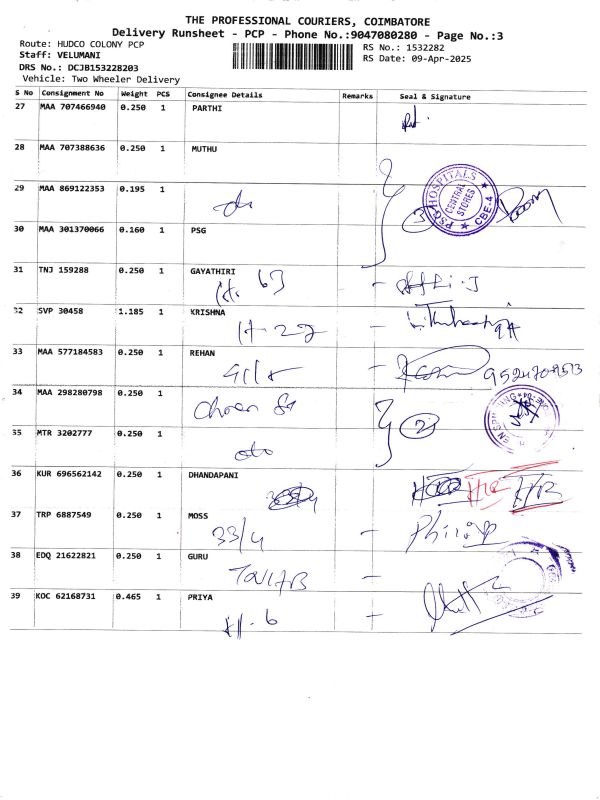 THE PROFESSIONAL COURIERS, COIMBATORE
Delivery Runsheet - PCP - Phone No.:9047080280 - Page No.:3
Route: HUDCO COLONY PCP
RS No.: 1532282
Staff: VELUMANI
RS Date: 09-Apr-2025
DRS No.: DCJB153228203
Vehicle: Two Wheeler Delivery
S No Consignment No Weight PCS Consignee Details Remarks Seal & Signature
27 MAA 707466940 0.250 1 PARTHI
28 MAA 707388636 0.250 1 MUTHU
29 MAA 869122353 0.195 1
do
PSG HOSPITALS
CENTRAL STORES
CBE-4
3
30 MAA 301370066 0.160 1 PSG
31 TNJ 159288 0.250 1 GAYATHIRI
H. 63
32 SVP 30458 1.185 1 KRISHNA
H-22
33 MAA 577184583 0.250 1 REHAN
34 MAA 298280798 0.250 1
2
35 MTR 3202777 0.250 1
do
36 KUR 696562142 0.250 1 DHANDAPANI
37 TRP 6887549 0.250 1 MOSS
33/4
38 EDQ 21622821 0.250 1 GURU
39 KOC 62168731 0.465 1 PRIYA
H. 6